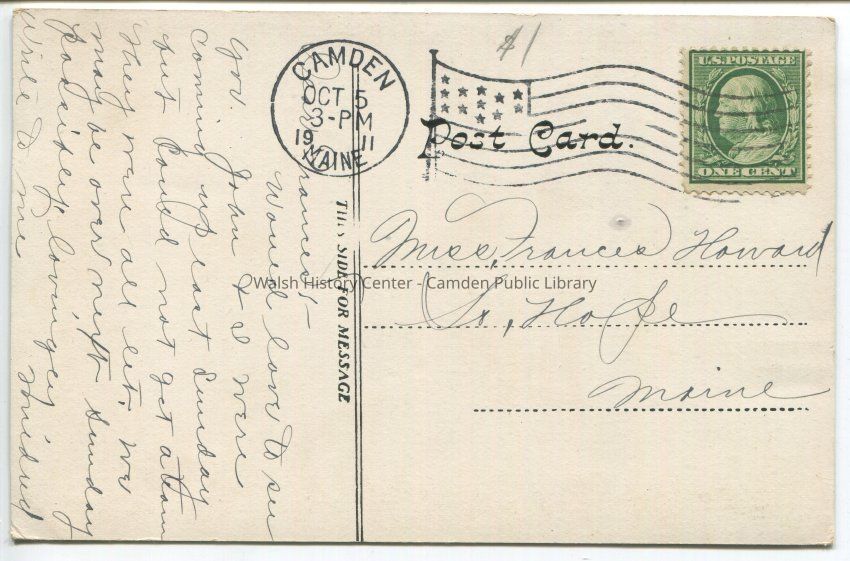 $1
CAMDEN
OCT 5
3-PM
19 11
MAINE
U.S. POSTAGE
ONE CENT
Post Card.
THIS SIDE FOR MESSAGE
Miss, Frances Howard
So, Hope
Maine
Dear Frances!-
Would love to see
you. John & I were
coming up last Sunday
but could not get a team
They were all let. We
may be over next Sunday
possibly, lovingly
Write to me Mildred
Walsh History Center - Camden Public Library